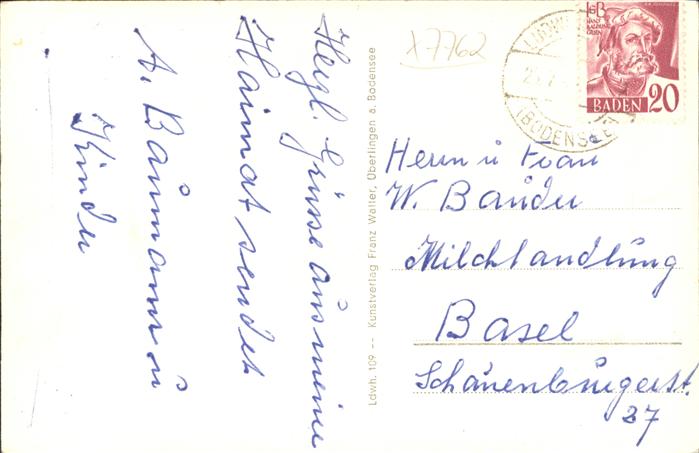 Herzl. Grüsse aus meiner
Heimat sendet
A. Baumann u
Kinder
Ldwh. 109 -- Kunstverlag Franz Walter, Überlingen a. Bodensee
X7762
(BODENSEE)
HANS
BALDUNG
GRIEN
BADEN 20
Herrn u Frau
W. Bander
Milchhandlung
Basel
Schauenburgerst.
27